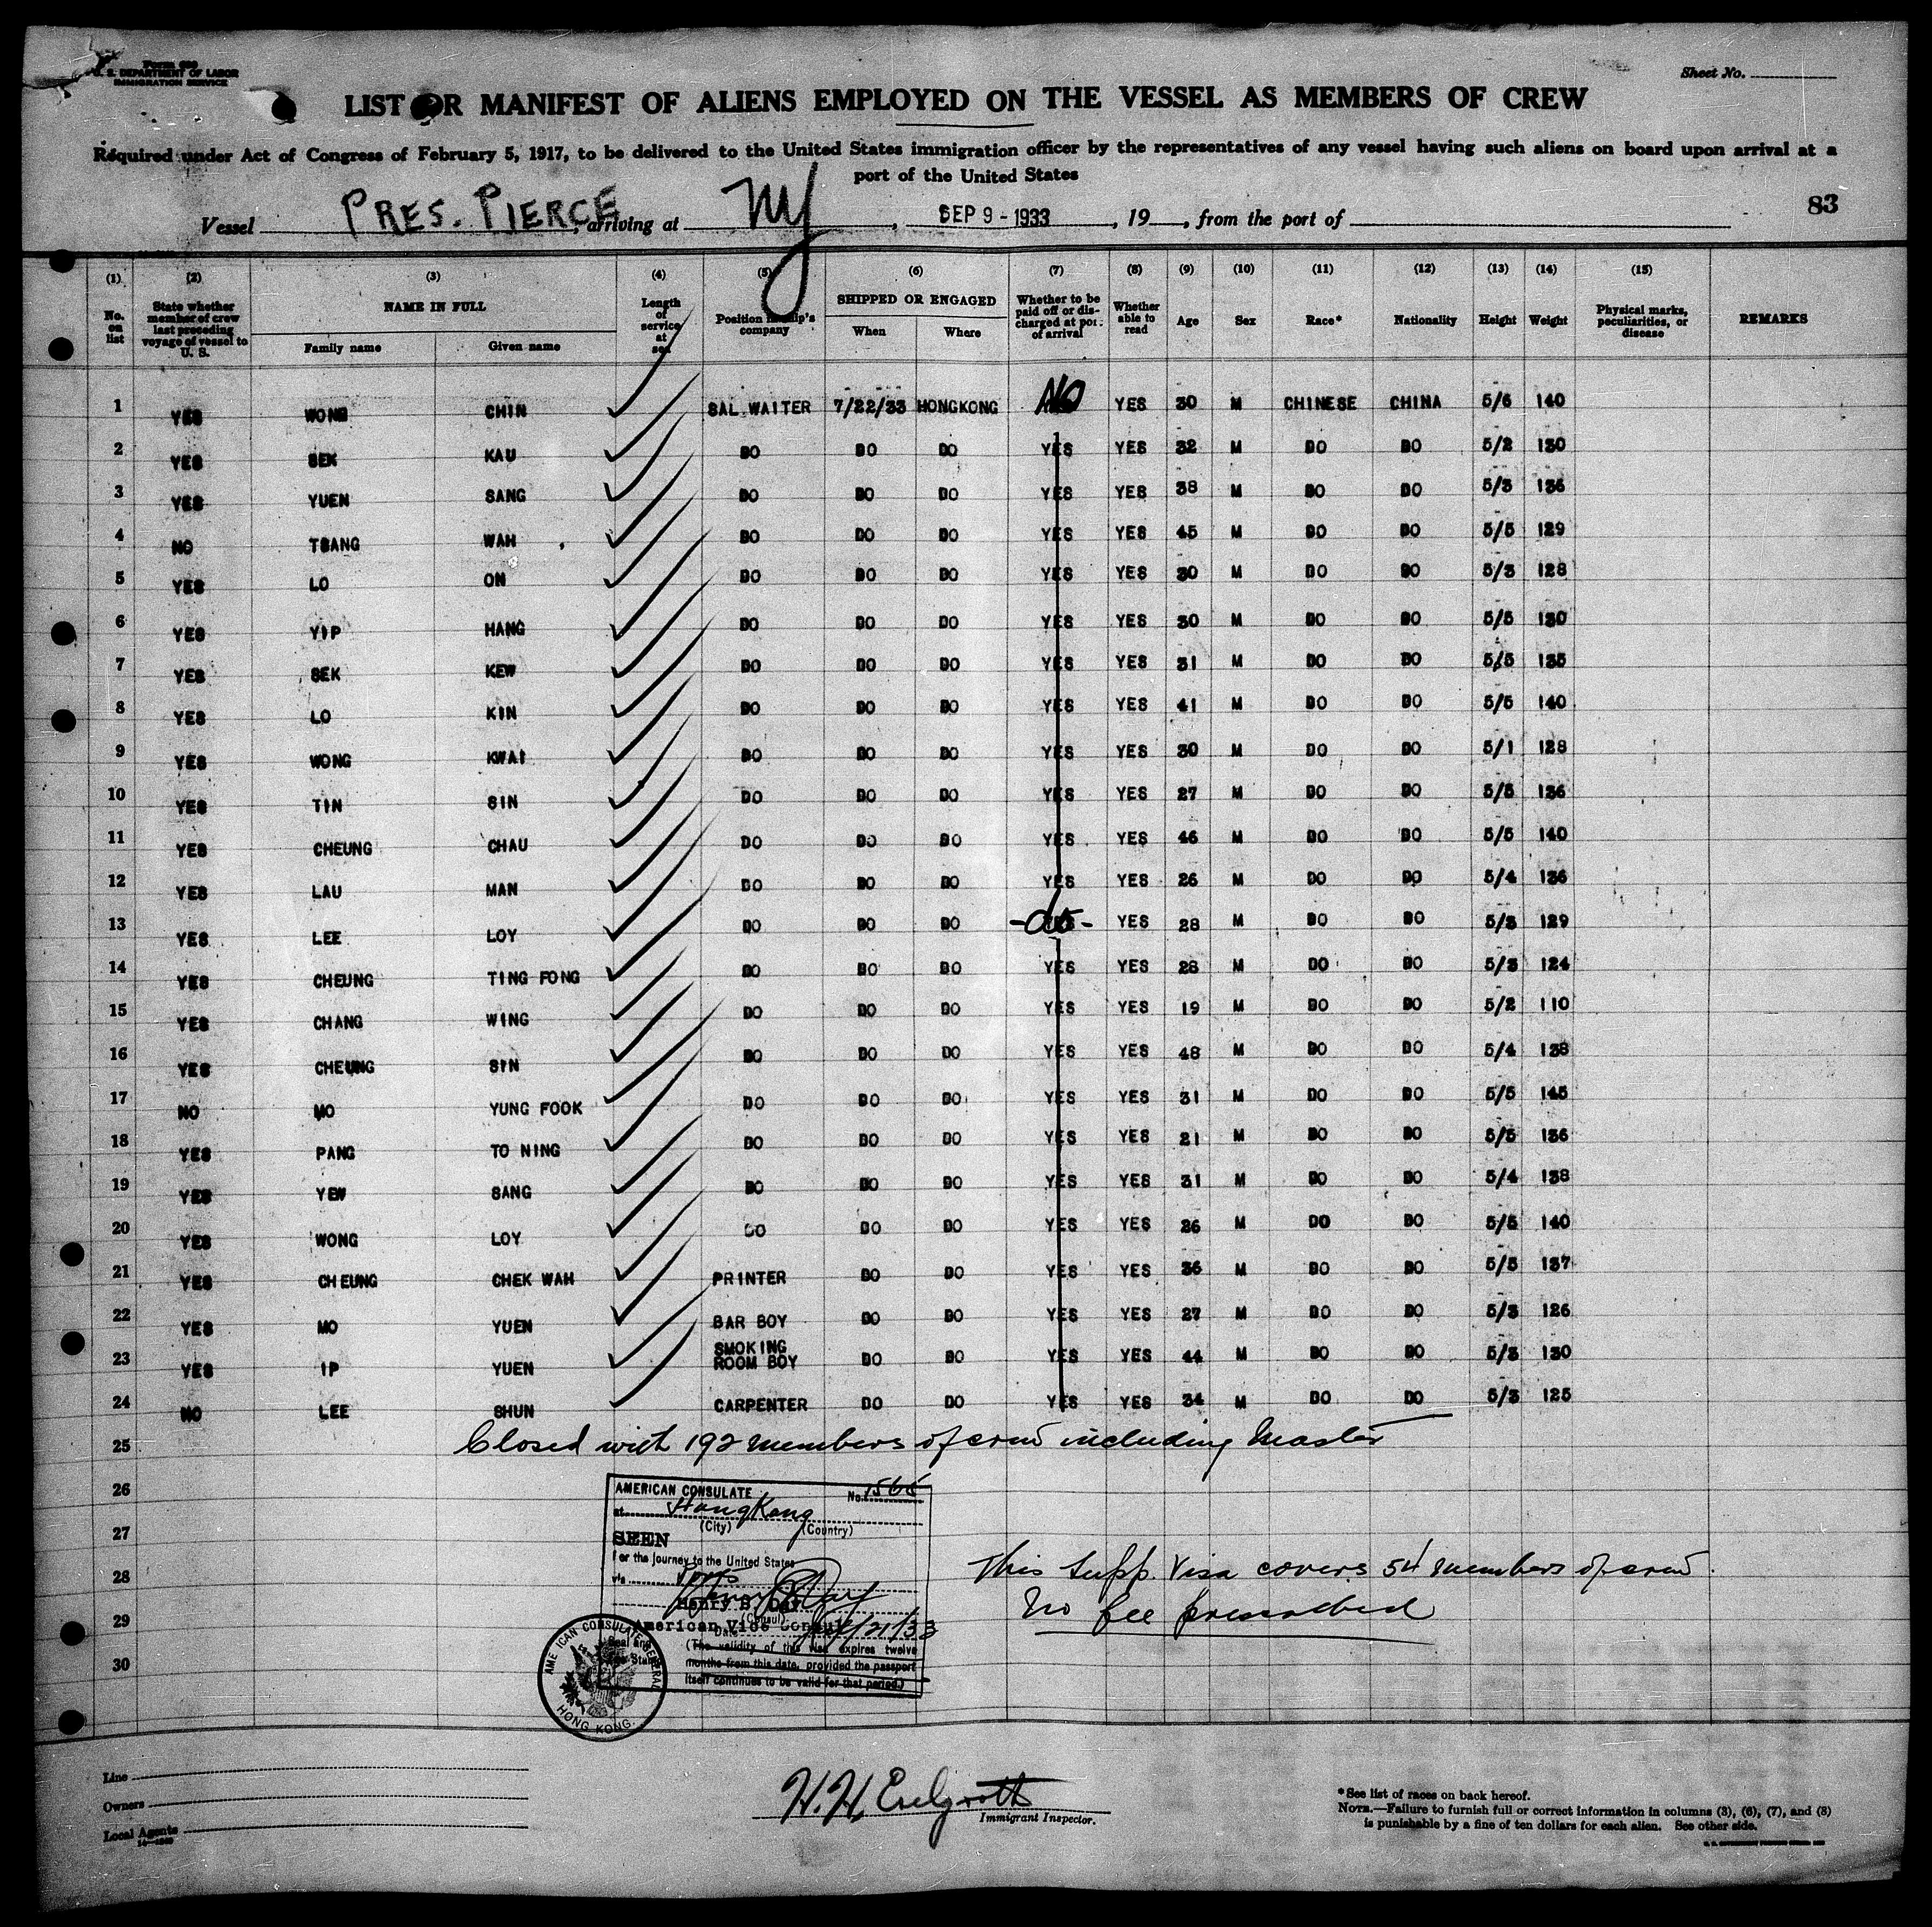 Form 689
U. S. DEPARTMENT OF LABOR
IMMIGRATION SERVICE
Sheet No.
LIST OR MANIFEST OF ALIENS EMPLOYED ON THE VESSEL AS MEMBERS OF CREW
Required under Act of Congress of February 5, 1917, to be delivered to the United States immigration officer by the representatives of any vessel having such aliens on board upon arrival at a
port of the United States
83
Vessel PRES. PIERCE, arriving at NY, SEP 9 - 1933, 19 , from the port of
(1) (2) (3) (4) (5) (6) (7) (8) (9) (10) (11) (12) (13) (14) (15)
No. on list State whether member of crew last preceding voyage of vessel to U. S. NAME IN FULL Family name Given name Length of service at sea Position in ship's company SHIPPED OR ENGAGED When Where Whether to be paid off or discharged at port of arrival Whether able to read Age Sex Race* Nationality Height Weight Physical marks, peculiarities, or disease REMARKS
1 YES WONG CHIN SAL WAITER 7/22/33 HONGKONG NO YES 30 M CHINESE CHINA 5/6 140
2 YES SEK KAU DO DO DO YES YES 32 M DO DO 5/2 130
3 YES YUEN SANG DO DO DO YES YES 38 M DO DO 5/3 136
4 NO TSANG WAH DO DO DO YES YES 45 M DO DO 5/5 129
5 YES LO ON DO DO DO YES YES 30 M DO DO 5/3 128
6 YES YIP HANG DO DO DO YES YES 30 M DO DO 5/5 130
7 YES SEK KEW DO DO DO YES YES 31 M DO DO 5/5 135
8 YES LO KIN DO DO DO YES YES 41 M DO DO 5/5 140
9 YES WONG KWAI DO DO DO YES YES 30 M DO DO 5/1 128
10 YES TIN SIN DO DO DO YES YES 27 M DO DO 5/5 136
11 YES CHEUNG CHAU DO DO DO YES YES 46 M DO DO 5/5 140
12 YES LAU MAN DO DO DO YES YES 26 M DO DO 5/4 136
13 YES LEE LOY DO DO DO -do- YES 28 M DO DO 5/3 129
14 YES CHEUNG TING FONG DO DO DO YES YES 28 M DO DO 5/3 124
15 YES CHANG WING DO DO DO YES YES 19 M DO DO 5/2 110
16 YES CHEUNG SIN DO DO DO YES YES 48 M DO DO 5/4 138
17 NO MO YUNG FOOK DO DO DO YES YES 31 M DO DO 5/5 145
18 YES PANG TO NING DO DO DO YES YES 21 M DO DO 5/5 136
19 YES YEW SANG DO DO DO YES YES 31 M DO DO 5/4 138
20 YES WONG LOY DO DO DO YES YES 26 M DO DO 5/5 140
21 YES CHEUNG CHEK WAH PRINTER DO DO YES YES 36 M DO DO 5/5 137
22 YES MO YUEN BAR BOY DO DO YES YES 27 M DO DO 5/3 126
23 YES IP YUEN SMOKING ROOM BOY DO DO YES YES 44 M DO DO 5/3 130
24 NO LEE SHUN CARPENTER DO DO YES YES 34 M DO DO 5/3 125
25 Closed with 192 members of crew including Master
26
27
28
29
30
AMERICAN CONSULATE No. 1565
at HongKong
(City) (Country)
SEEN
For the journey to the United States
via Ports
Henry B. Day
(Consul)
American Vice Consul
Date 7/21/33
(The validity of this visa expires twelve
months from this date, provided the passport
itself continues to be valid for that period.)
AMERICAN CONSULATE GENERAL
HONG KONG.
This Supp. Visa covers 54 members of crew.
No fee prescribed
Line
Owners
Local Agents
H.H.
Immigrant Inspector.
*See list of races on back hereof.
NOTE.—Failure to furnish full or correct information in columns (3), (6), (7), and (8)
is punishable by a fine of ten dollars for each alien. See other side.